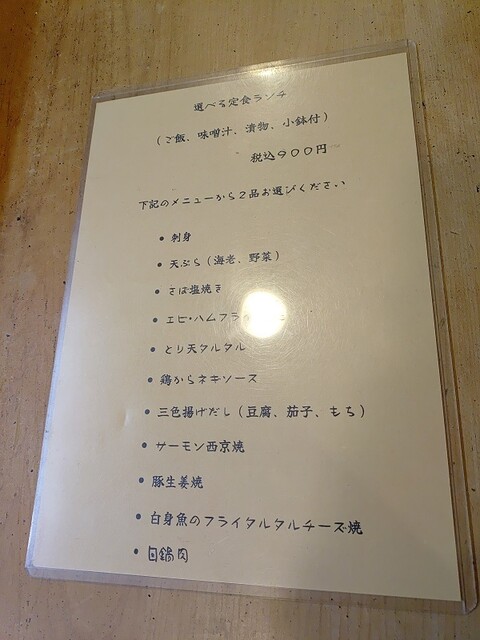 選べる定食ランチ
(ご飯、味噌汁、漬物、小鉢付)
税込900円
下記のメニューから2品お選びください
・刺身
・天ぷら(海老、野菜)
・さば塩焼き
・エビ・ハムフラ
・とり天タルタル
・鶏からネギソース
・三色揚げだし(豆腐、茄子、もち)
・サーモン西京焼
・豚生姜焼
・白身魚のフライタルタルチーズ焼
・回鍋肉